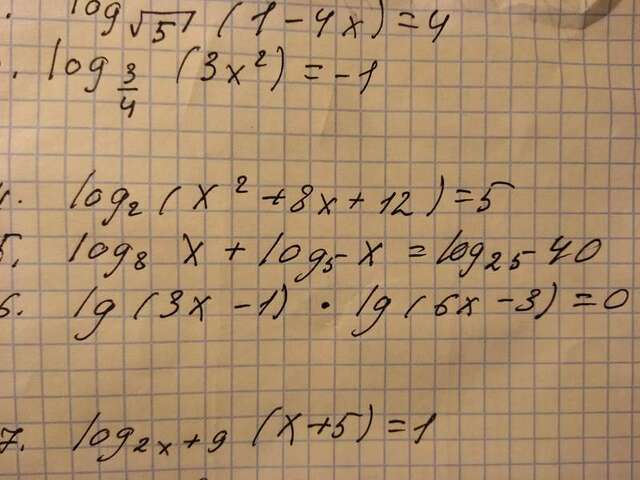 . log√5 (1 - 4x) = 4
. log 3/4 (3x²) = -1
4. log₂ (x² + 8x + 12) = 5
5. log₈ x + log₅ x = log₂₅ 40
6. lg (3x - 1) · lg (6x - 3) = 0
7. log₂ₓ₊₉ (x + 5) = 1